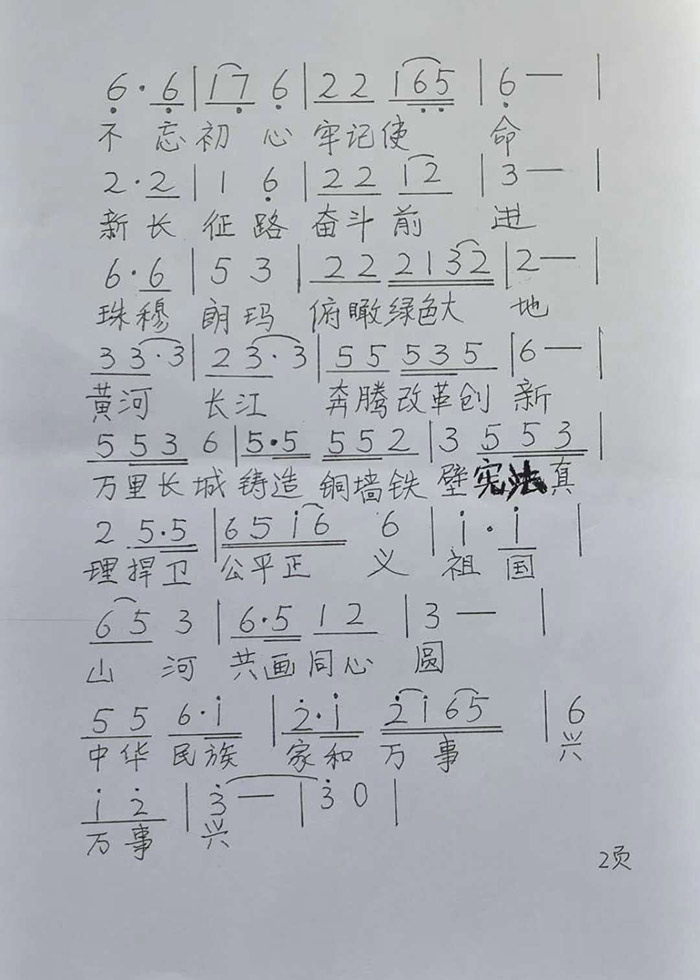 6·6|17 6|22 165|6—|
不忘初心牢记使命
2·2|1 6|22 12|3—|
新长征路奋斗前进
6·6|5 3|222 2132|2—|
珠穆朗玛俯瞰绿色大地
33·3|23·3|55 535|6—|
黄河 长江 奔腾改革创新
553 6|5·5 552|3 553|
万里长城铸造铜墙铁壁宪法真
2 5·5|6516 6|i·i|
理捍卫公平正义祖国
65 3|6·5 12|3—|
山河共画同心圆
55 6·i|2·i 2i65|6
中华民族家和万事兴
i 2|3—|30|
万事兴
2页